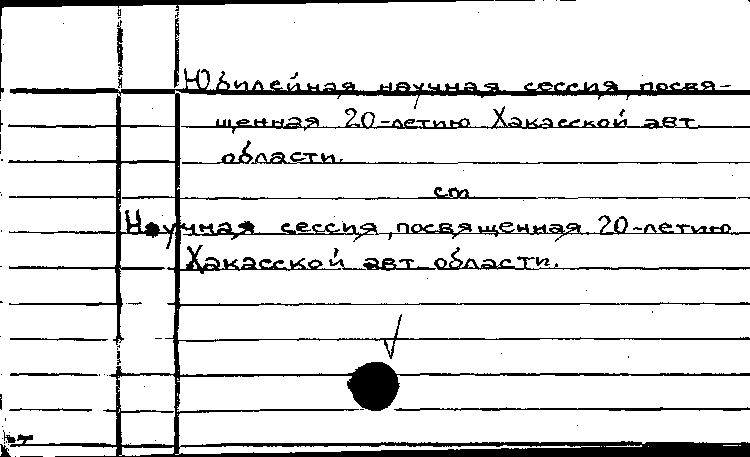 Юбилейная научная сессия, посвя-
щенная 20-летию Хакасской авт.
области.
см
Научная сессия, посвященная 20-летию
Хакасской авт. области.